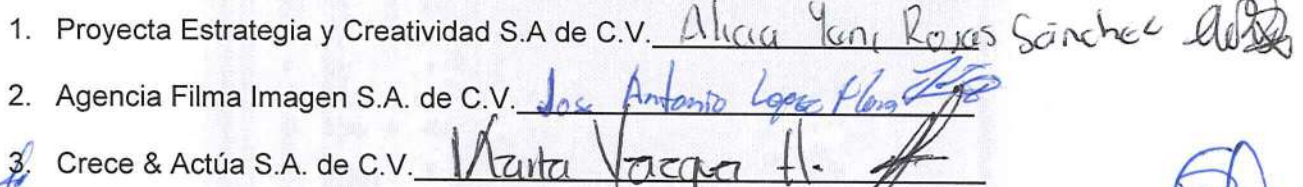 1. Proyecta Estrategia y Creatividad S.A de C.V. Alicia Yani Rojas Sánchez
2. Agencia Filma Imagen S.A. de C.V. Jose Antonio Lopez
3. Crece & Actúa S.A. de C.V. Marta Vacqua H.